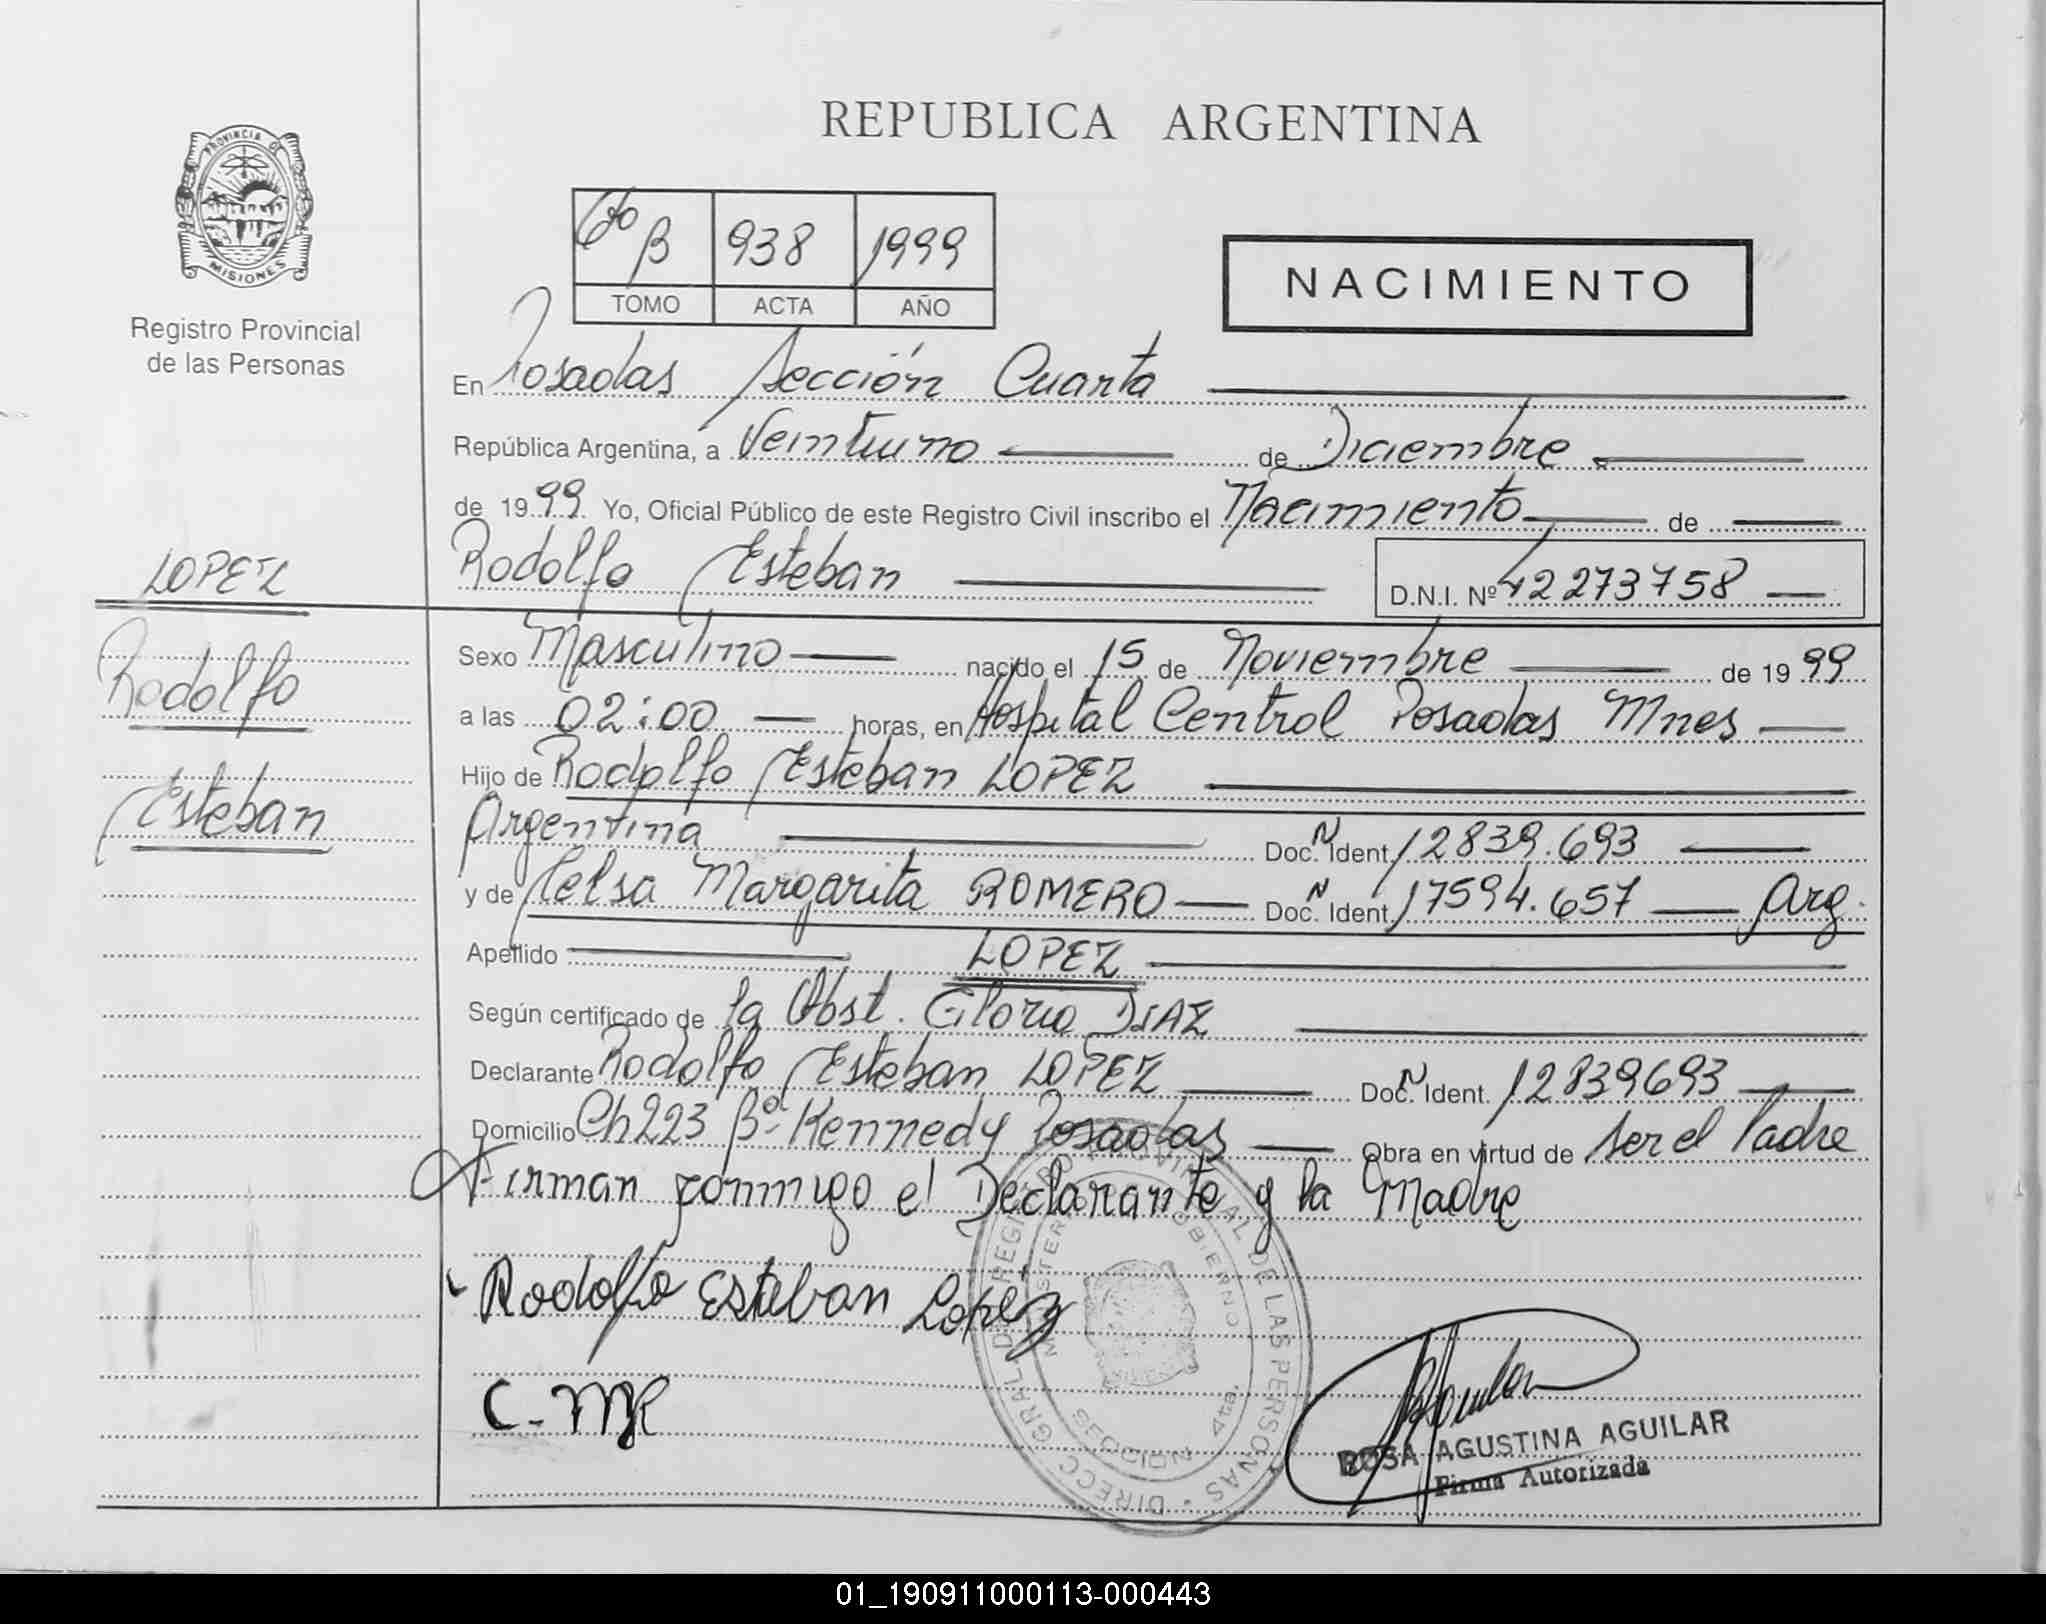 REPUBLICA ARGENTINA
PROVINCIA DE
MISIONES
Registro Provincial
de las Personas
6to B 938 1999
TOMO ACTA AÑO
NACIMIENTO
En Posadas Sección Cuarta
República Argentina, a Veintiuno de Diciembre
de 1999 Yo, Oficial Público de este Registro Civil inscribo el Nacimiento de
Rodolfo Esteban D.N.I. Nº 42273758
LOPEZ
Rodolfo
Esteban
Sexo Masculino nacido el 15 de Noviembre de 1999
a las 02:00 horas, en Hospital Central Posadas Mnes
Hijo de Rodolfo Esteban LOPEZ
Argentina Doc. N Ident 12839.693
y de Celsa Margarita ROMERO Doc. N Ident 17594.657 Arg.
Apellido LOPEZ
Según certificado de la Obst. Gloria DIAZ
Declarante Rodolfo Esteban LOPEZ Doc. N Ident. 12839693
Domicilio Ch223 Bº Kennedy Posadas Obra en virtud de ser el Padre
Firman conmigo el Declarante y la Madre
Rodolfo Esteban Lopez
C-MR
DIRECC. GRAL. DE REGISTRO PROVINCIAL DE LAS PERSONAS
MINISTERIO GOBIERNO
SECCION 4ta.
ROSA AGUSTINA AGUILAR
Firma Autorizada
01_190911000113-000443